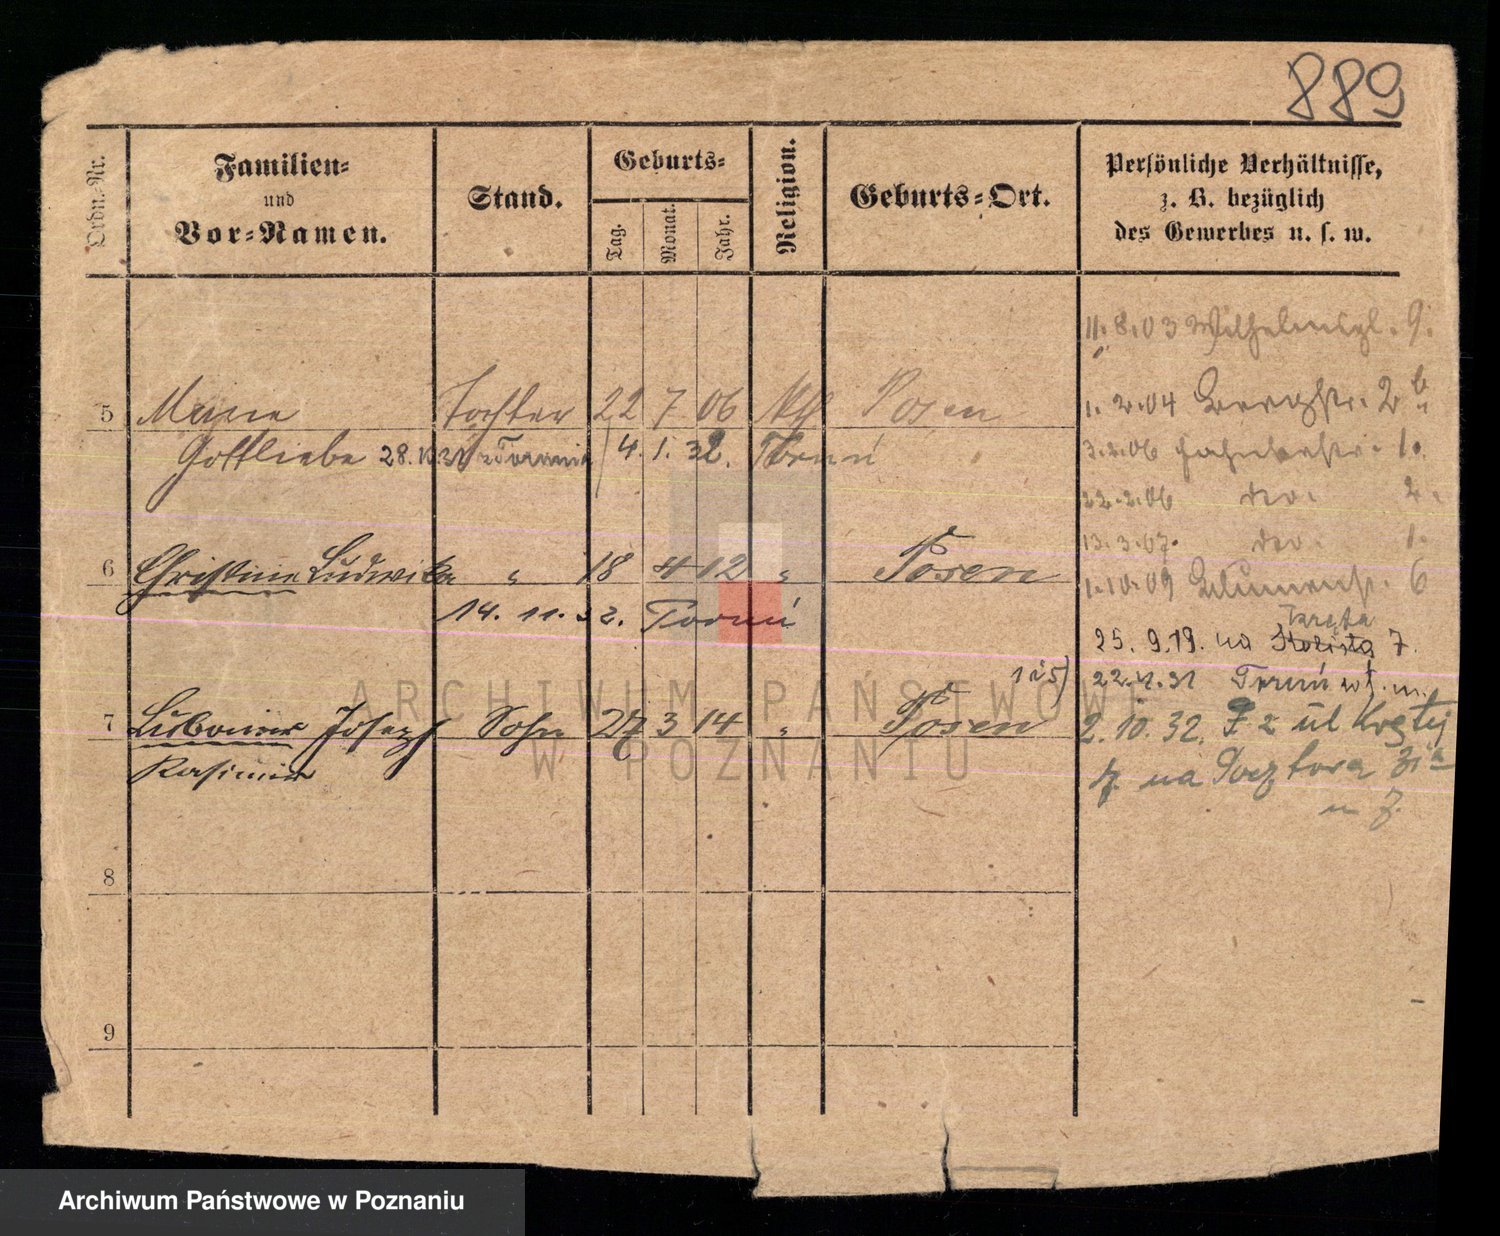 889
Ordn.-Nr.
Familien-
und
Vor-Namen.
Stand.
Geburts-
Tag.
Monat.
Jahr.
Religion.
Geburts-Ort.
Persönliche Verhältnisse,
z. B. bezüglich
des Gewerbes u. s. w.
11.8.03 Wilhelmspl. 9.
5 Marie Tochter 22 7 06 kth Posen
1. 2.04
Gottliebe 28.10.31 z Torunia 4. 1. 32. Toruń
3.2.06 1.
22.2.06 2.
13.3.07. 1.
6 Christine Ludwika " 18 4 12 " Posen
1.10.09 Blumenstr. 6
14. 11. 32. Toruń
Kręta
25. 9.19. na 7.
1 i 5)
22.4.31 Toruń
7 Lubomir Joseph Sohn 27 3 14 " Posen
2.10.32. z ul Krętej
Kasimir
7. na
m 7.
8
9
ARCHIWUM PAŃSTWOWE
W POZNANIU
Archiwum Państwowe w Poznaniu